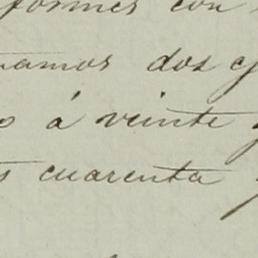 formes con
namos dos
á veinte
cuarenta